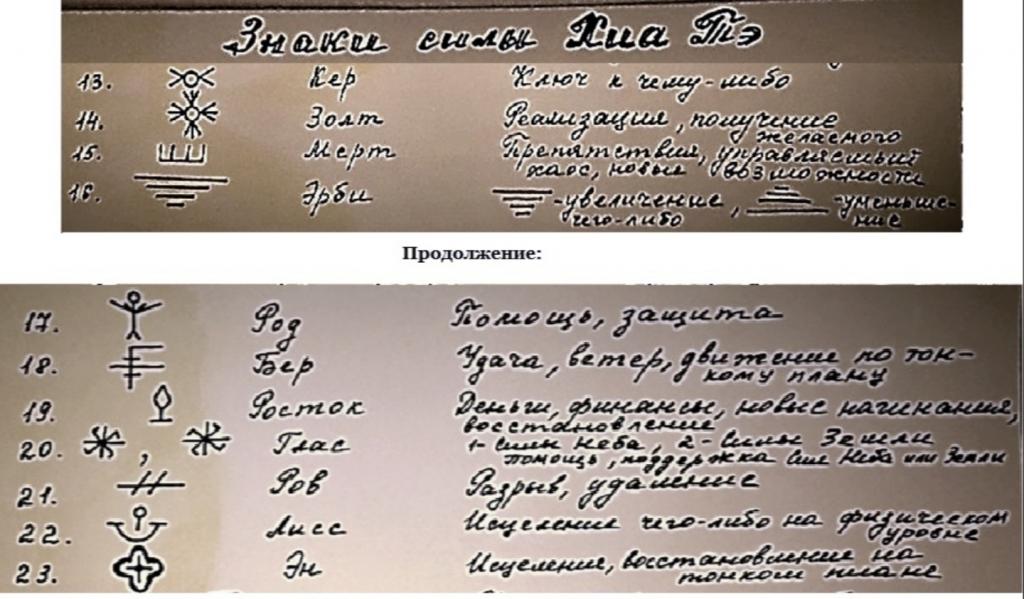 Знаки силы Хиа Тэ
13. Кер Ключ к чему-либо
14. Золт Реализация, получение
желаемого
15. Мерт Препятствия, управляемый
хаос, новые возможности
16. Эрби -увеличение , -уменьше-
чего-либо ние
Продолжение:
17. Род Помощь, защита
18. Бер Удача, ветер, движение по тон-
кому плану
19. Росток Деньги, финансы, новые начинания,
восстановление
20. , Глас 1-Силы Неба, 2-Силы Земли
помощь, поддержка Сил Неба или Земли
21. Ров Разрыв, удаление
22. Лисс Исцеление чего-либо на физическом
уровне
23. Эн Исцеление, восстановление на
тонком плане